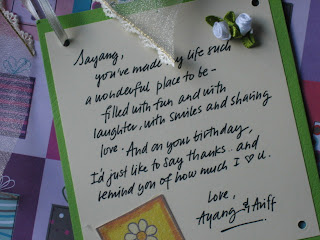 Sayang,
you've made my life such
a wonderful place to be -
filled with fun and with
laughter, with smiles and sharing
love. And on your birthday,
I'd just like to say thanks.. and
remind you of how much I ♡ u.
love,
Ayang & Ariff